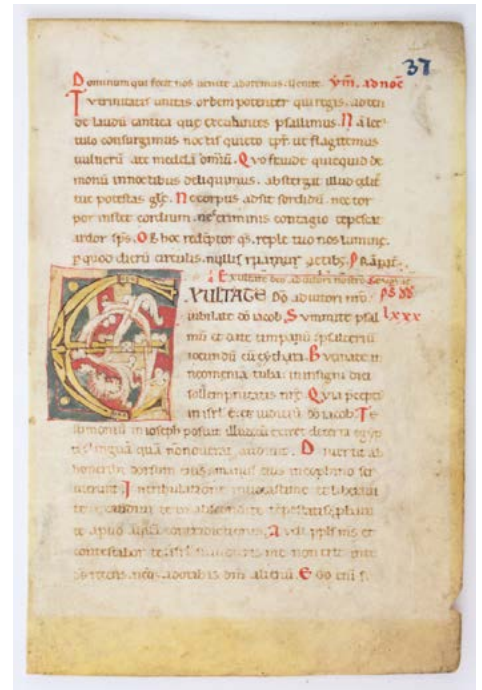 37
Dominum qui fecit nos uenite adoremus. Uenite. ym̄. ad noc̄
Tu trinitatis unitas orbem potenter qui regis. adten
de laudū cantica que excubantes psallimus. Na lec
tulo consurgimus noctis quieto tp̄r. ut flagitemus
uulnerū a te medelā omiū. Quo fraude quicquid de
monū in noctibus deliquimus. abstergat illud celi
tus potestas gle. Ne corpus adsit sordidū. nec tor
por instet cordium. nec criminis contagio tepescat
ardor sp̄s. Ob hoc redēptor q̄s. reple tuo nos lumine.
p quod dierū circulis. nullis ruamur actibꝫ. P̄
Exultate deo adiutori nostro
EXULTATE Dō adiutori nr̄o
iubilate dō iacob. Summite psal
lxxx
mū et date timpanū psalteriū
iocundū cū cythara. Bucinate in
neomenia tuba: in insigni diei
sollempnitatis nr̄e. Quia preceptū
in isrl̄ est et iudiciū dō iacob. Tes
timoniū in ioseph posuit illud cū exiret de terra egyp
ti: linguā quā non nouerat audiuit. Diuertit ab
honeribꝫ dorsum eius manus eius in cophino ser
uierunt. In tribulatione inuocasti me et liberaui
te exaudiui te in abscondito tēpestatis. probaui
te apud aquā contradictionis. Audi ppls ms et
contestabor te. isrl̄ si audieris me non erit in te
ds̄ recens. neqꝫ adorabis dm̄ alienū. Ego enī s̄.